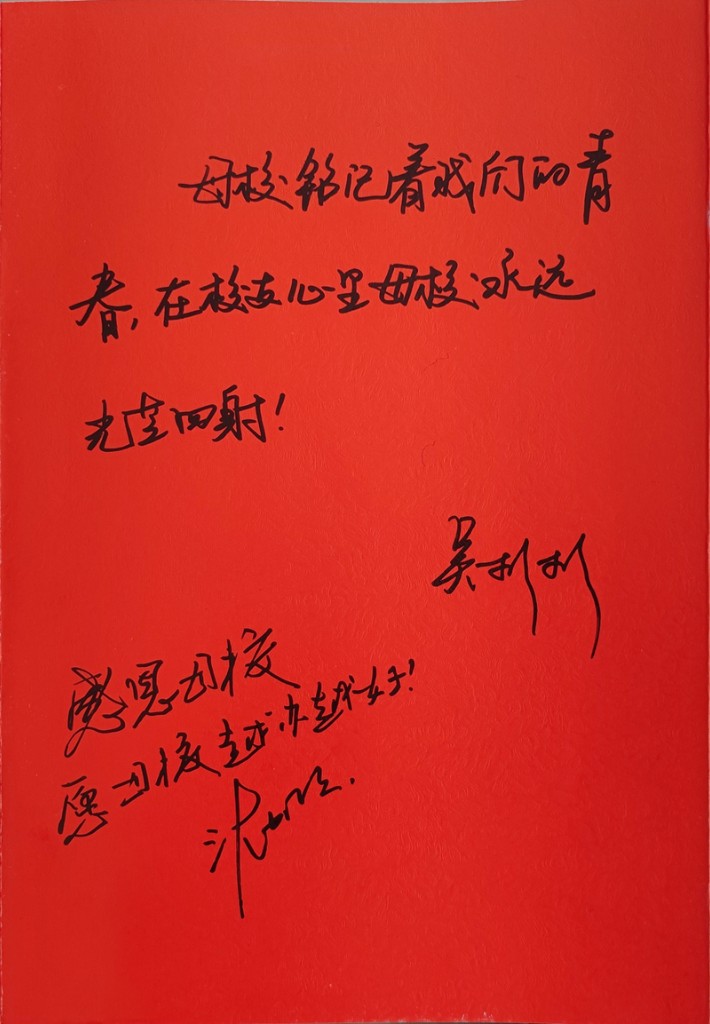 母校铭记着我们的青
春,在校友心里母校永远
光芒四射!
吴彬彬
感恩母校
愿母校越办越好!